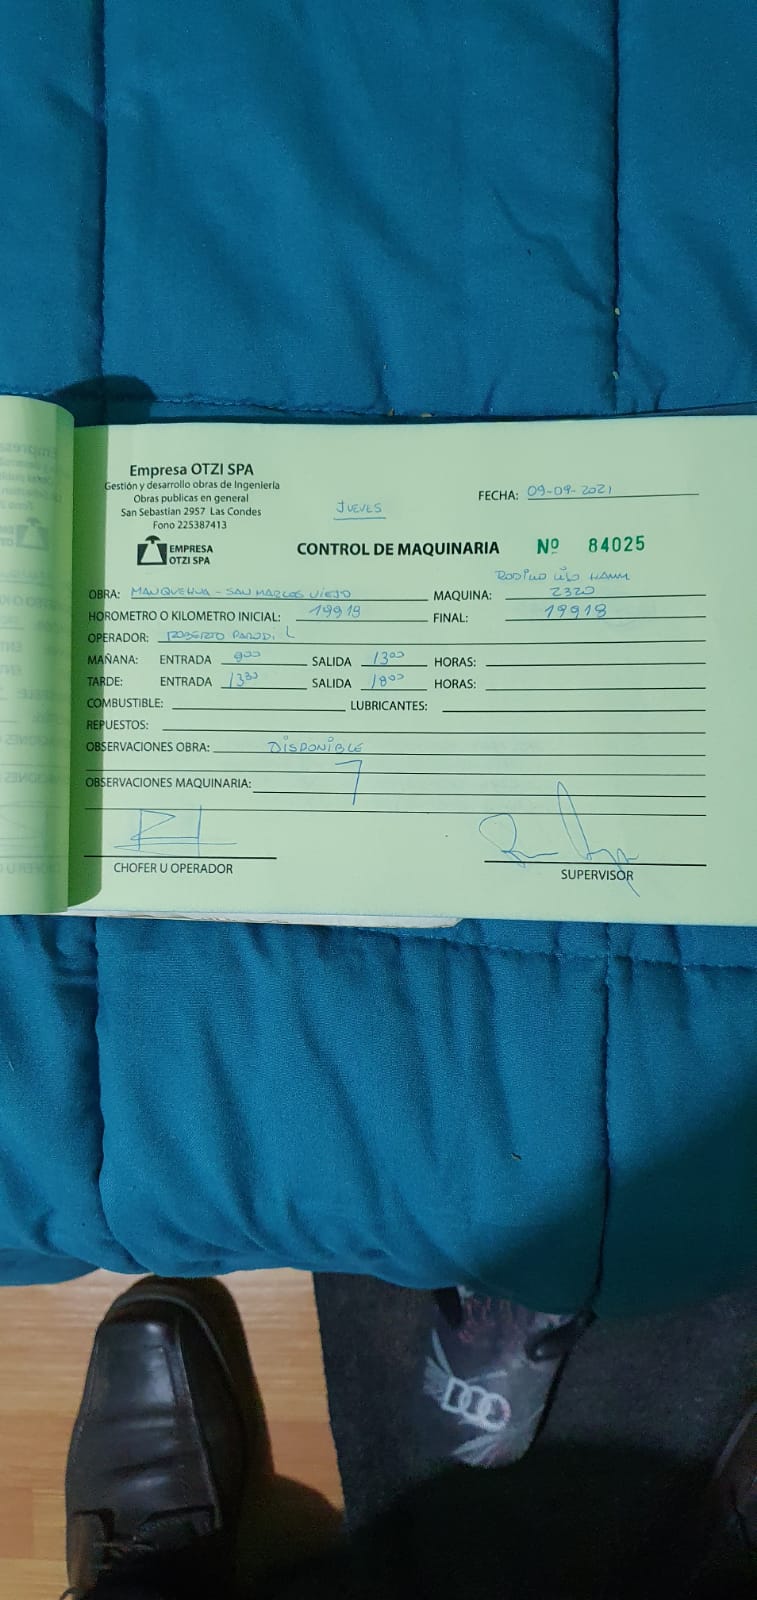 Empresa OTZI SPA
Gestión y desarrollo obras de Ingeniería
Obras publicas en general
San Sebastian 2957 Las Condes
Fono 225387413
EMPRESA
OTZI SPA
JUEVES
FECHA: 09-09-2021
CONTROL DE MAQUINARIA Nº 84025
RODILLO LISO HAMM
OBRA: MANQUEHUA - SAN MARCOS VIEJO MAQUINA: 2320
HOROMETRO O KILOMETRO INICIAL: 19919 FINAL: 19919
OPERADOR: ROBERTO PARODI L
MAÑANA: ENTRADA 900 SALIDA 1300 HORAS:
TARDE: ENTRADA 1330 SALIDA 1800 HORAS:
COMBUSTIBLE: LUBRICANTES:
REPUESTOS:
OBSERVACIONES OBRA: DISPONIBLE
OBSERVACIONES MAQUINARIA:
CHOFER U OPERADOR
SUPERVISOR